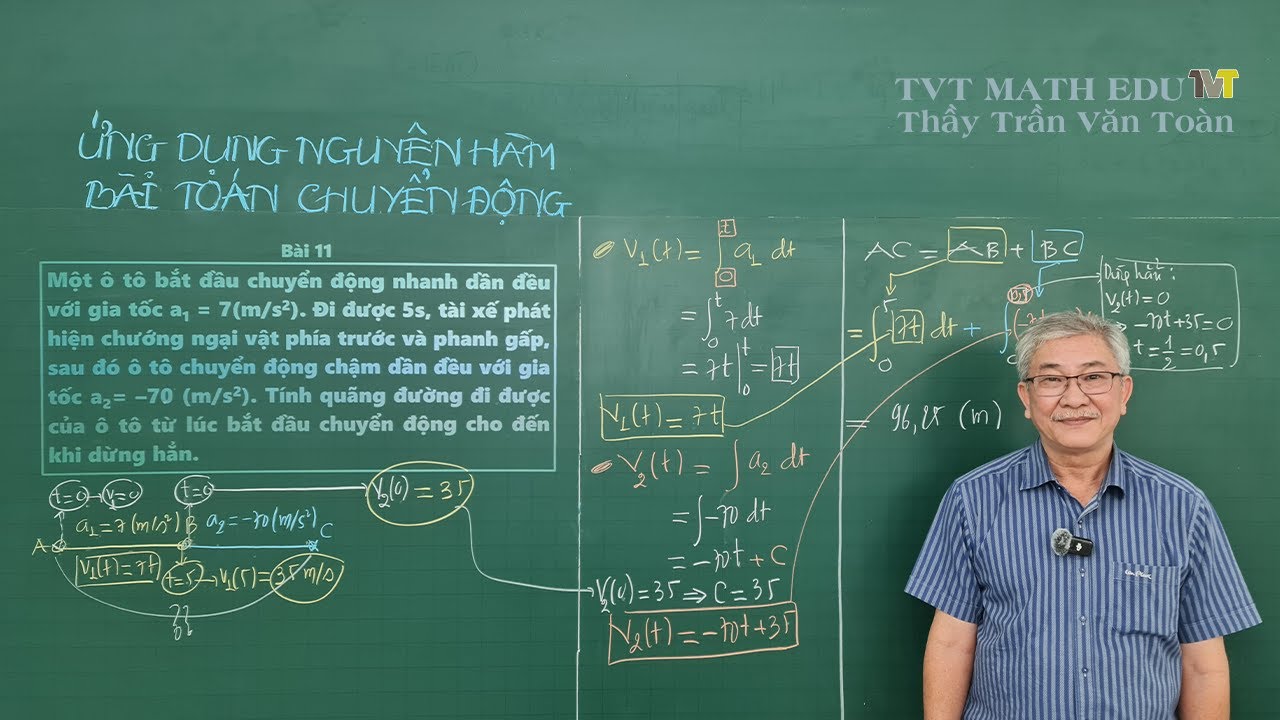 TVT MATH EDU TVT
Thầy Trần Văn Toàn
ỨNG DỤNG NGUYÊN HÀM
BÀI TOÁN CHUYỂN ĐỘNG
Bài 11
Một ô tô bắt đầu chuyển động nhanh dần đều
với gia tốc a₁ = 7(m/s²). Đi được 5s, tài xế phát
hiện chướng ngại vật phía trước và phanh gấp,
sau đó ô tô chuyển động chậm dần đều với gia
tốc a₂= –70 (m/s²). Tính quãng đường đi được
của ô tô từ lúc bắt đầu chuyển động cho đến
khi dừng hẳn.
t=0 → v=0
t=0
V₂(0) = 35
a₁=7(m/s²) B a₂=-70(m/s²) C
A
V₁(t)=7t t=5 → V₁(5)=35 m/s
??
V₁(t) = ∫₀ᵗ a₁ dt
= ∫₀ᵗ 7dt
= 7t|₀ᵗ = 7t
V₁(t) = 7t
V₂(t) = ∫ a₂ dt
= ∫ -70 dt
= -70t + C
V₂(0) = 35 ⇒ C = 35
V₂(t) = -70t+35
AC = AB + BC
= ∫₀⁵ 7t dt + ∫
= 96,25 (m)
Dừng hẳn:
V₂(t) = 0
⇒ -70t+35=0
t = 1/2 = 0,5